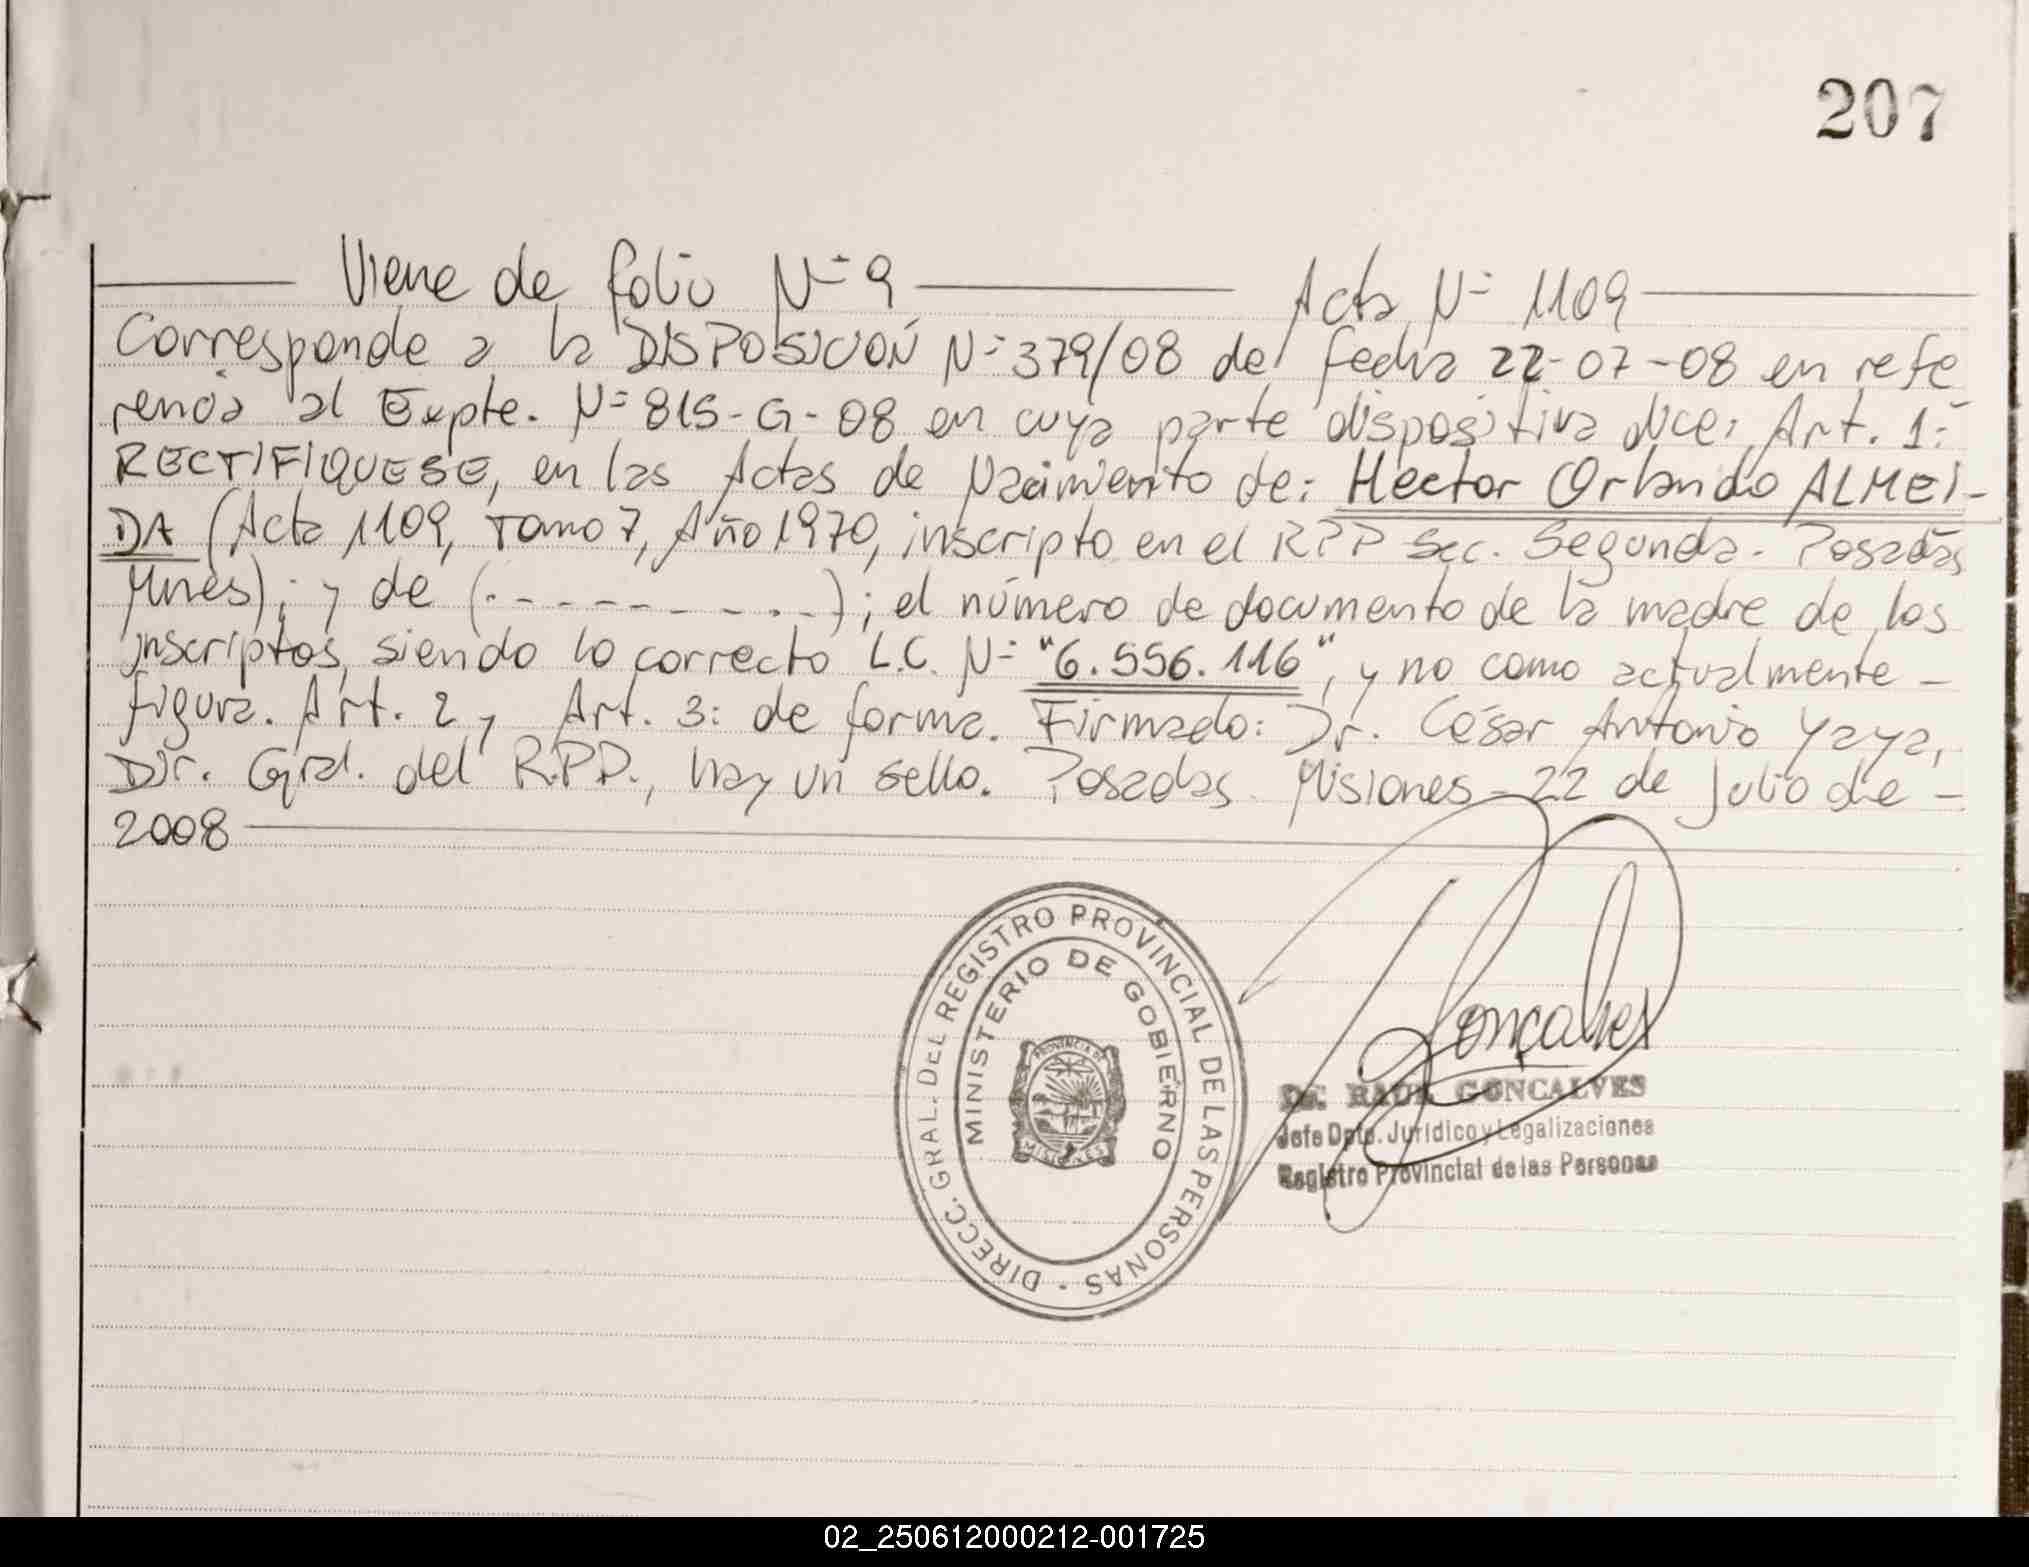 207
Viene de folio Nº 9 Acta Nº 1109
Corresponde a la DISPOSICIÓN Nº 379/08 de fecha 22-07-08 en refe
rencia al Expte. Nº 815-G-08 en cuya parte dispositiva dice: Art. 1º
RECTIFIQUESE, en las Actas de Nacimiento de: Hector Orlando ALMEI-
DA (Acta 1109, Tomo 7, Año 1970, inscripto en el RPP Sec. Segunda. Posadas
Mnes); y de (. - - - - - - - . .); el número de documento de la madre de los
inscriptos, siendo lo correcto L.C. Nº "6.556.116", y no como actualmente -
figura. Art. 2 y Art. 3: de forma. Firmado: Dr. César Antonio Yaya,
Dir. Gral. del R.P.P., hay un sello. Posadas Misiones 22 de Julio de -
2008
DIRECC. GRAL. DEL REGISTRO PROVINCIAL DE LAS PERSONAS -
MINISTERIO DE GOBIERNO
PROVINCIA DE
MISIONES
Gonçalves
Dr. RAUL GONCALVES
Jefe Dpto. Jurídico y Legalizaciones
Registro Provincial de las Personas
02_250612000212-001725